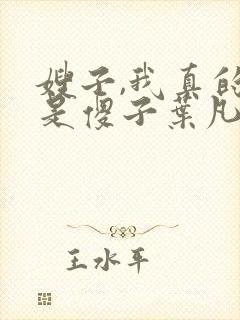 嫂子,我真的
是傻子葉凡
王水平